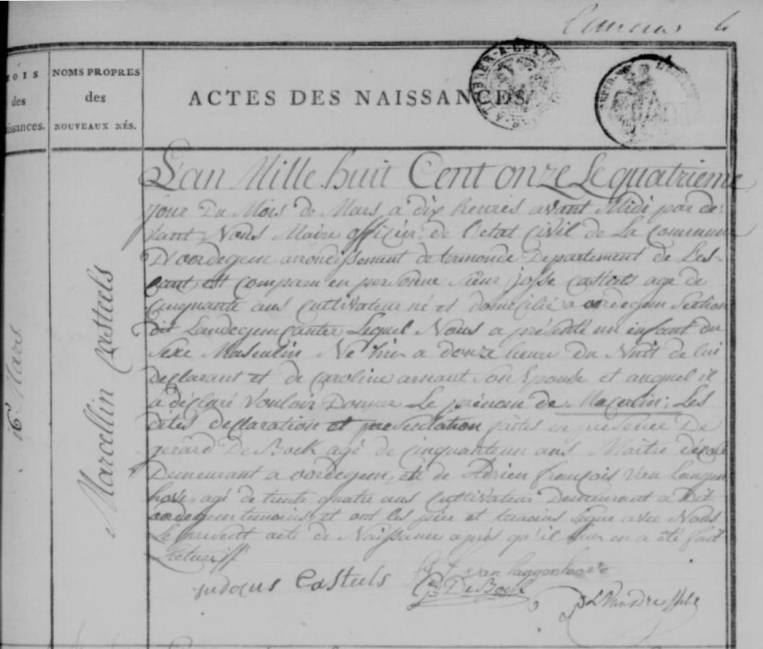 MOIS
des
NAISSANCES.
NOMS PROPRES
des
NOUVEAUX NÉS.
ACTES DES NAISSANCES.
Marcellin Casteels
Mars
L'an Mille huit Cent onze Le quatrieme
jour Du Mois de Mars a dix heures avant Midi par de-
vant Nous Maire officier de L'etat Civil de La Commune
D'oordegem arrondissement de termonde Departement de L'es-
caut est comparu en personne Sieur josse Casteels age de
Cinquante ans Cultivateur né et domicilié a oordegem Section
dit Lequel Nous a présenté un enfant du
Sexe Masculin Né hier a douze heure du Nuit de lui
declarant et de Caroline Son Epouse et auquel il
a déclaré Vouloir Donner Le prénom de Les
dites declaration et presentation faites en présence De
gerard De Bock agé de cinquante un ans Maitre d'école
Demeurant a oordegem, et de Adrien françois Van Langen-
hove, agé de trente quatre ans Cultivateur Demeurant a Dit
oordegem temoins et ont les pére et temoins Signé avec Nous
Le présent acte de Naissance après qu'il leur en a été fait
Lecture
judocus Casteels
van Langenhove
De Bock